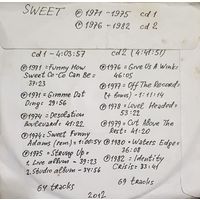 SWEET
Ⓟ 1971-1975 cd 1
Ⓟ 1976-1982 cd 2
cd 1 - 4:03:57
Ⓟ 1971 = Funny How
Sweet Co-Co Can Be =
37:23
Ⓟ 1971 = Gimme Dat
Ding = 39:56
Ⓟ 1974 = Desolation
Boulevard = 41:22
Ⓟ 1974 = Sweet Fanny
Adams (rem) = 1:00:54
Ⓟ 1975 = Strung Up =
1. Live album = 39:23
2. Studio album = 34:56
64 tracks
cd 2 (4:41:51)
Ⓟ 1976 = Give Us A Wink:
46:05
Ⓟ 1977 = Off The Record
(+ Bonus) - 1:11:14
Ⓟ 1978 = Level Headed =
53:22
Ⓟ 1979 = Cut Above The
Rest = 41:20
Ⓟ 1980 = Waters Edge =
36:08
Ⓟ 1982 = Identity
Crisis = 33:41
69 tracks
2012